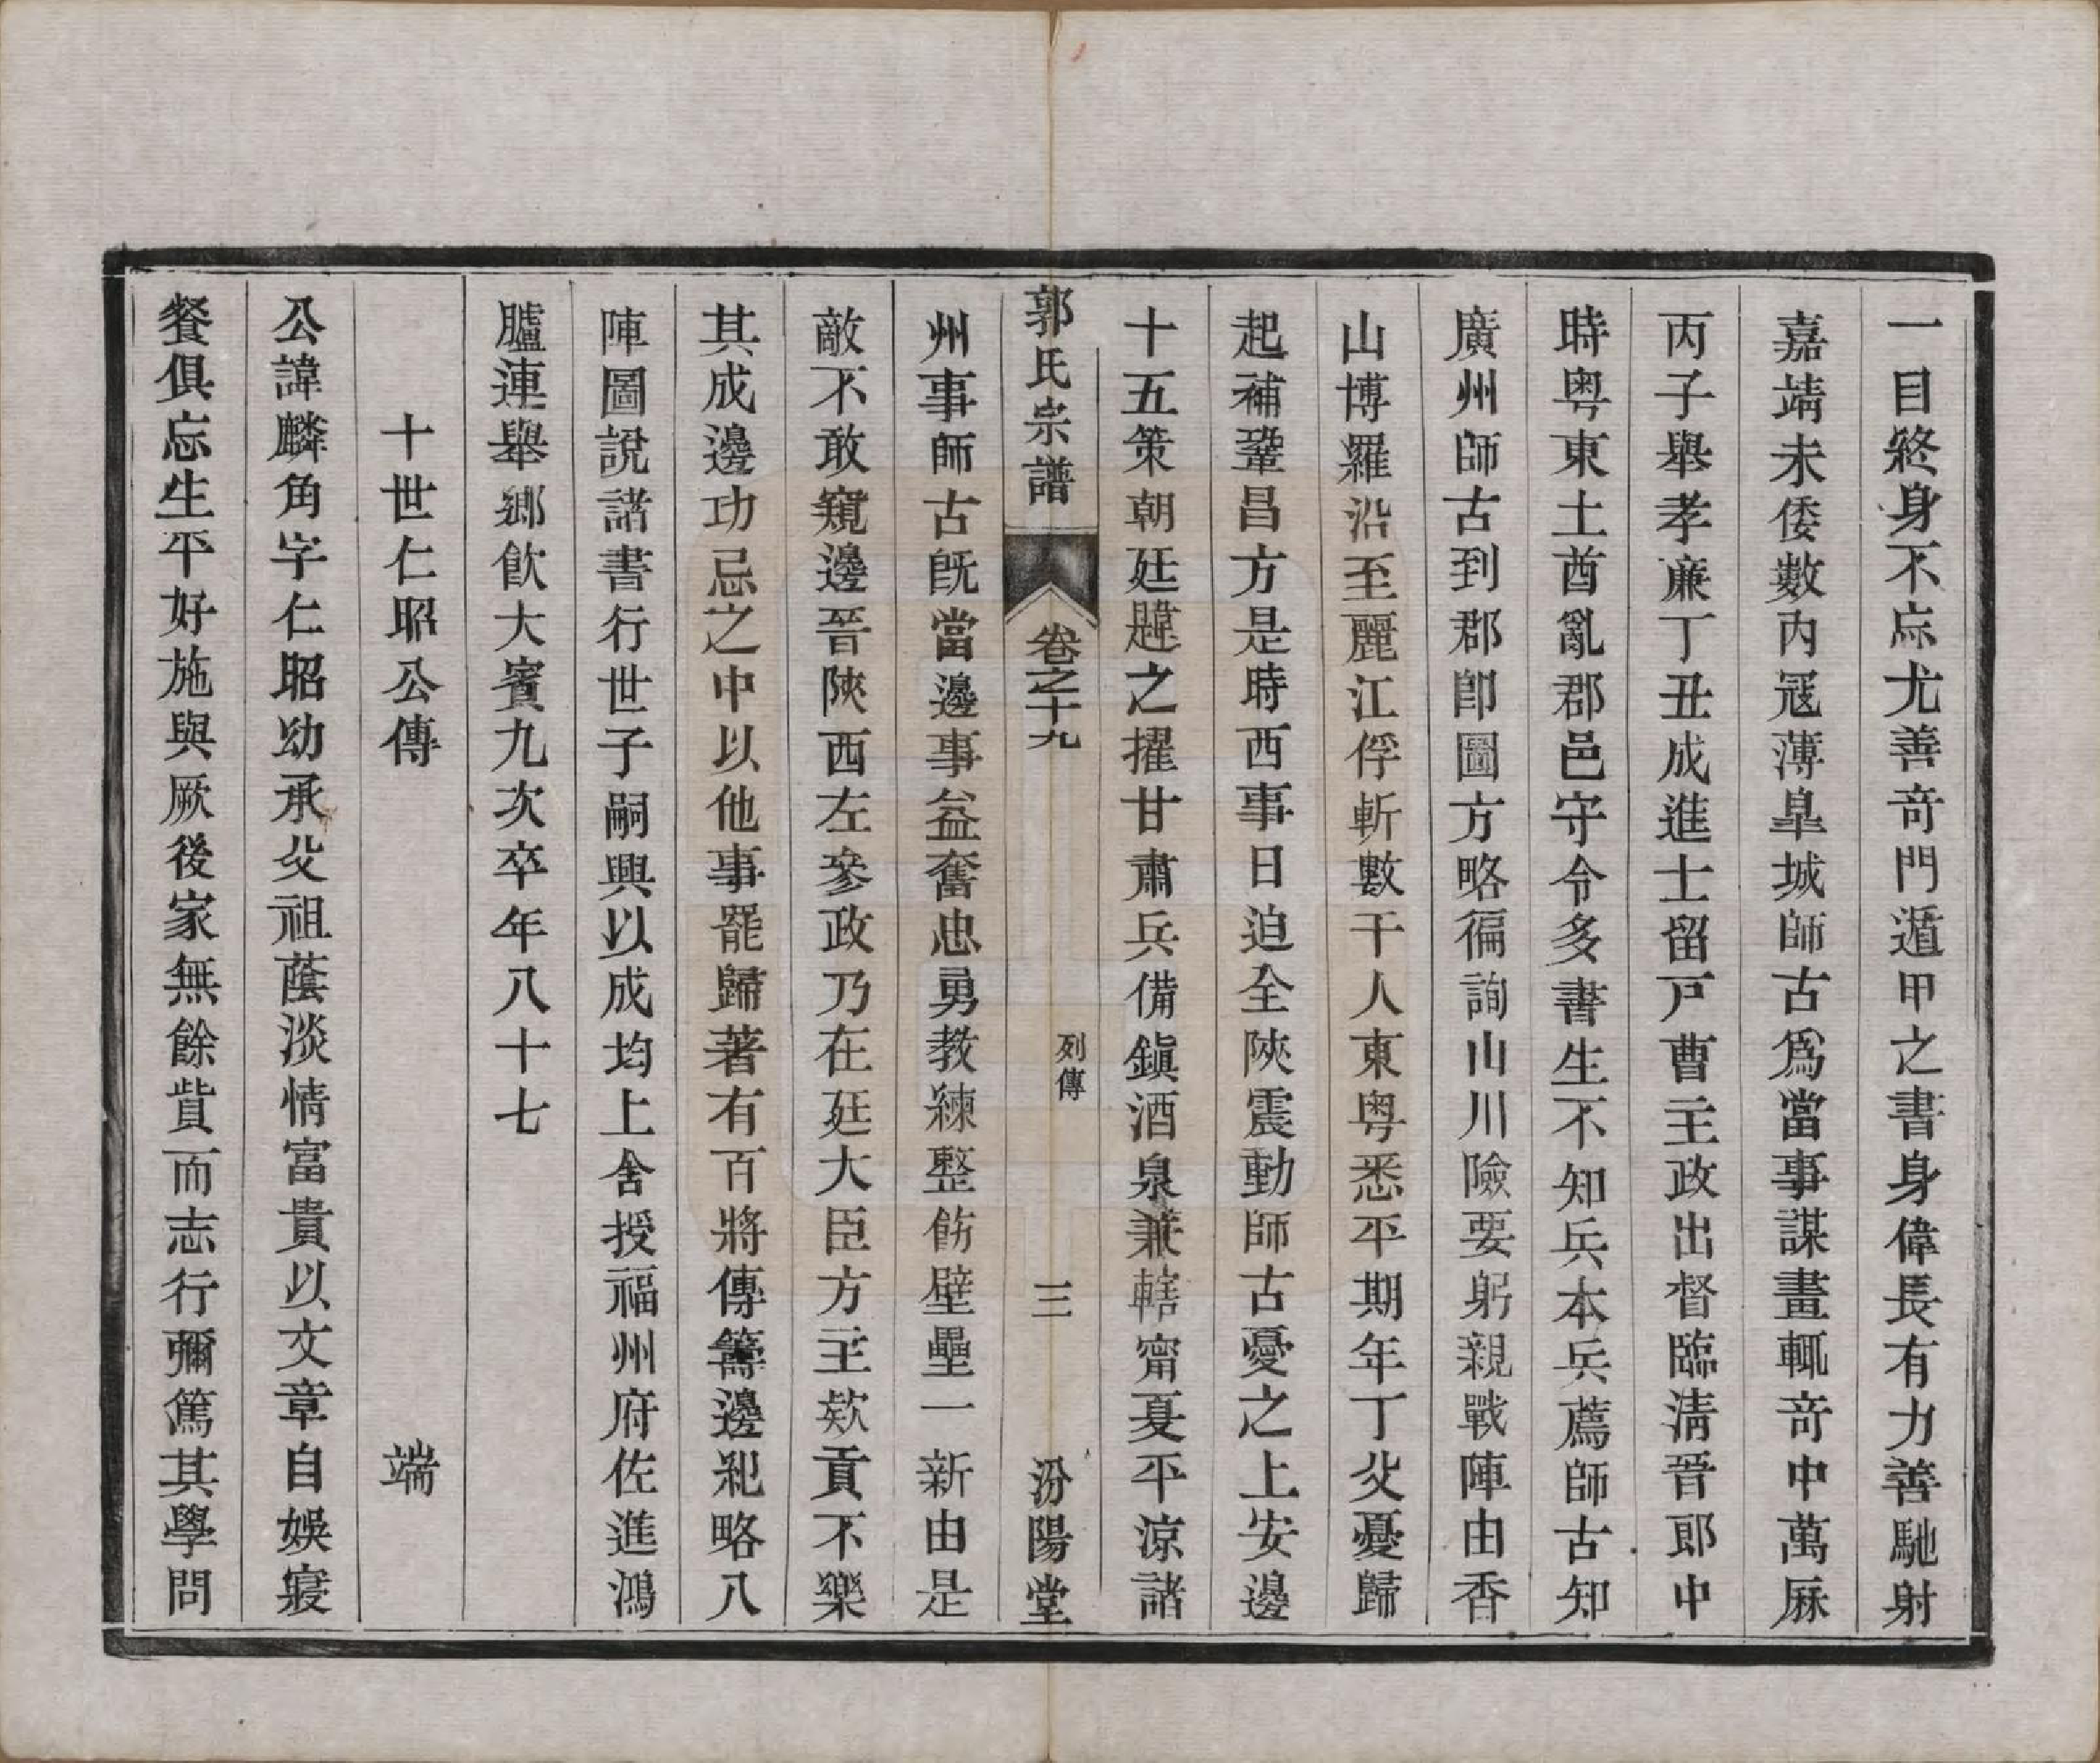 一目終身不忘尤善奇門遁甲之書身偉長有力善馳射
嘉靖未倭數內寇薄皐城師古爲當事謀畫輒奇中萬厤
丙子舉孝廉丁丑成進士留戸曹主政出督臨清晉郎中
時粤東土酋亂郡邑守令多書生不知兵本兵薦師古知
廣州師古到郡即圖方略徧詢山川險要躬親戰陣由香
山博羅沿至麗江俘斬數千人東粤悉平期年丁父憂歸
起補鞏昌方是時西事日迫全陝震動師古憂之上安邊
十五策朝廷韙之擢甘肅兵備鎭酒泉兼轄甯夏平涼諸
郭氏宗譜
卷之十九
列傳
三
汾陽堂
州事師古旣當邊事益奮忠勇教練整飭壁壘一新由是
敵不敢窺邊晉陝西左參政乃在廷大臣方主欵貢不樂
其成邊功忌之中以他事罷歸著有百將傳籌邊紀略八
陣圖說諸書行世子嗣興以成均上舍授福州府佐進鴻
臚連舉鄉飲大賓九次卒年八十七
十世仁昭公傳
端
公諱麟角字仁昭幼承父祖蔭淡情富貴以文章自娛寢
餐俱忘生平好施與厥後家無餘貲而志行彌篤其學問